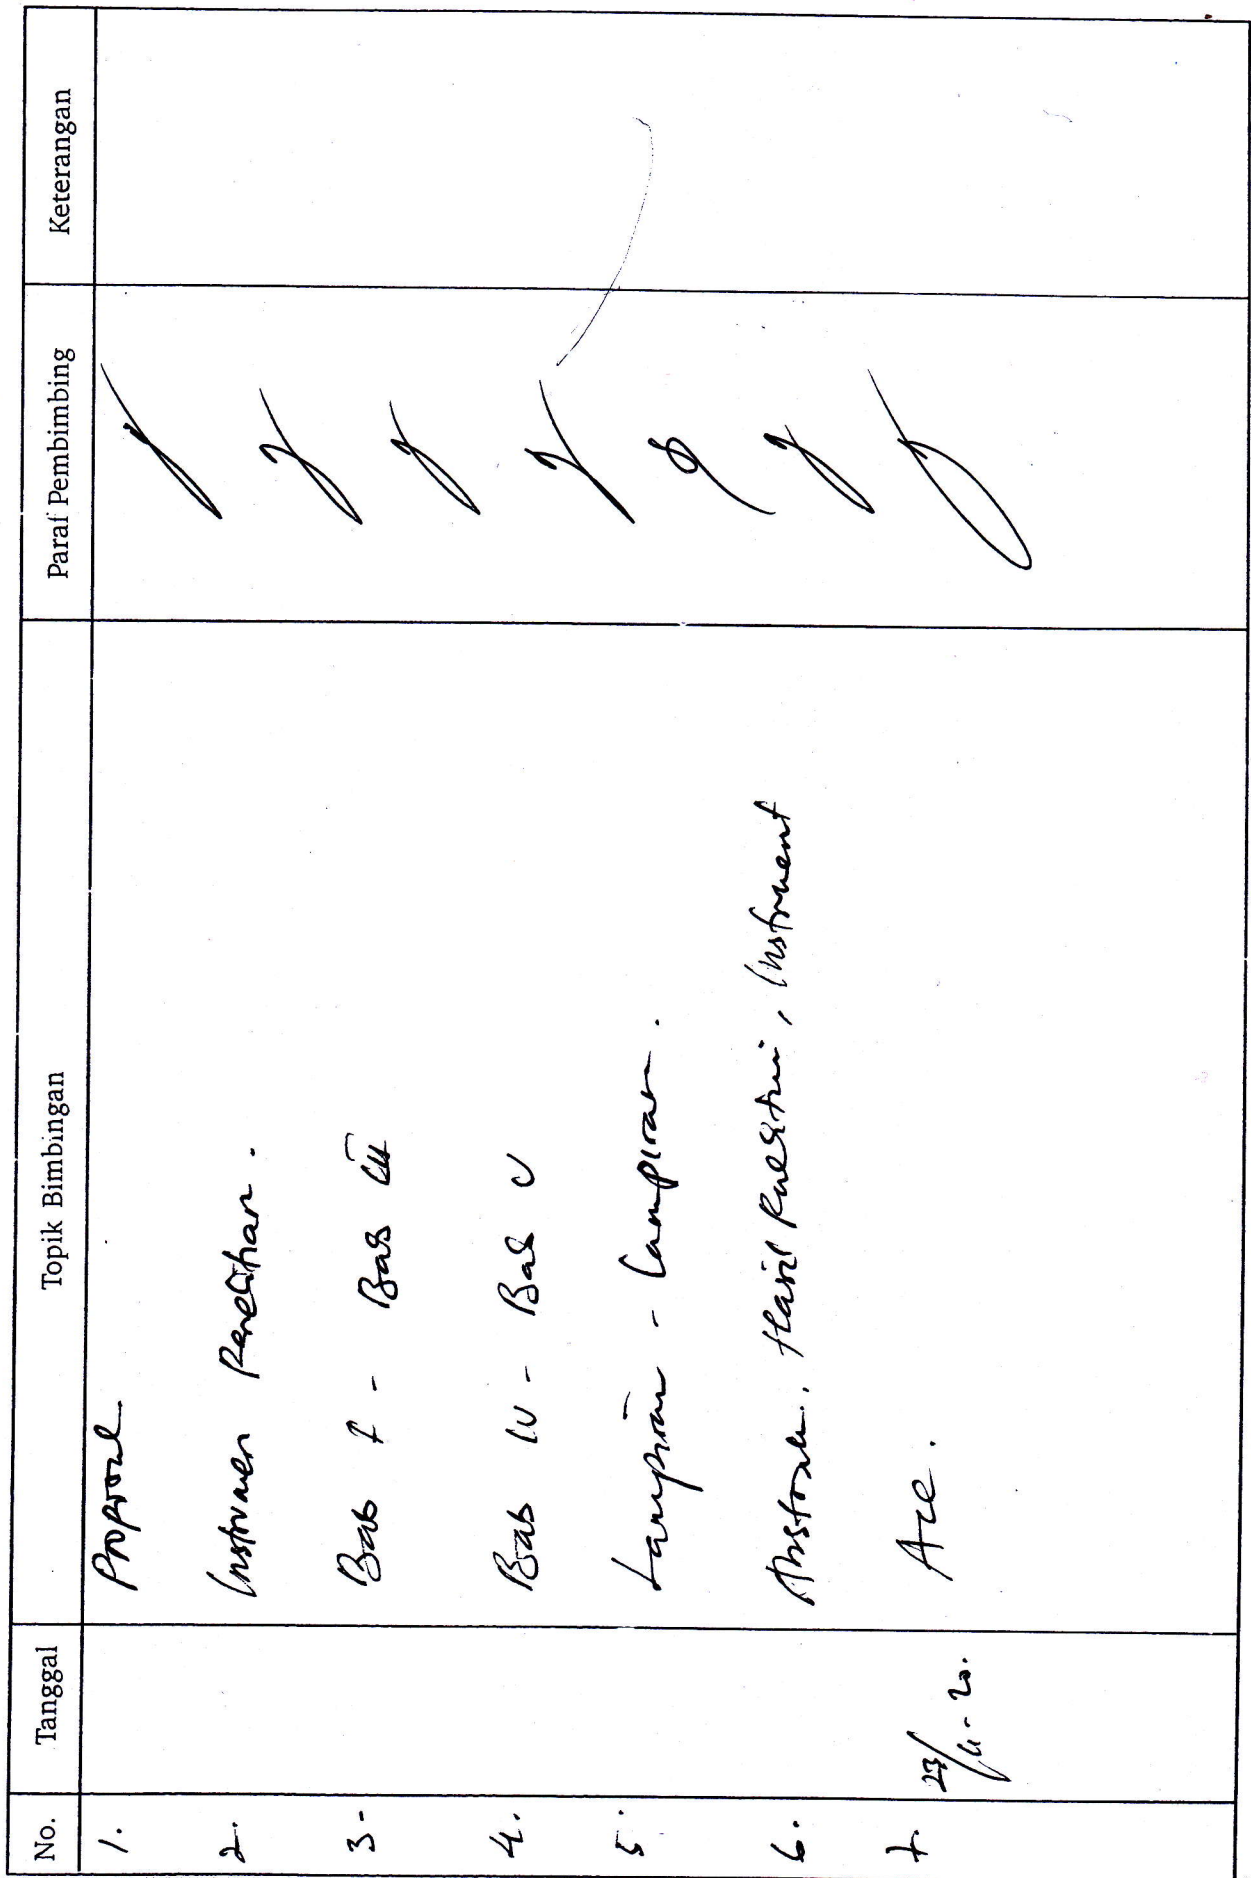 No. Tanggal Topik Bimbingan Paraf Pembimbing Keterangan
1. Proposal.
2. Instrumen Penelitian.
3- Bab I - Bab III
4. Bab IV - Bab V
5. Lampiran - Lampiran.
6. Hasil, Instrument
7. 23/11-20. Acc.